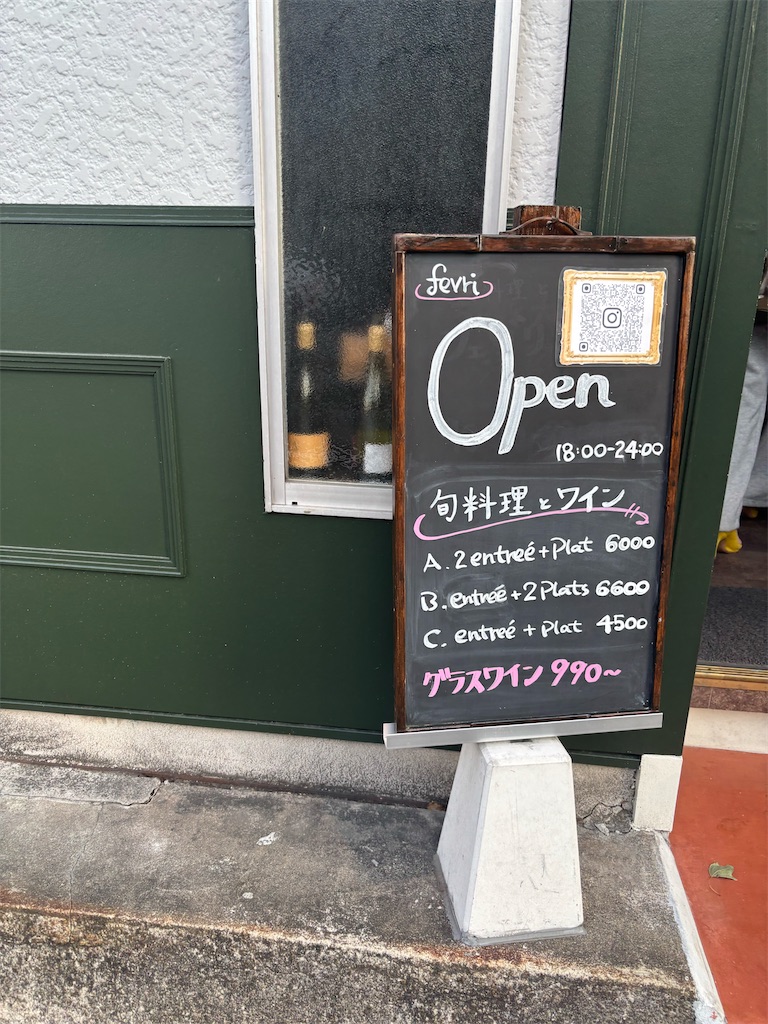 fevri
Open
18:00-24:00
旬料理とワイン
A. 2 entreé + Plat 6000
B. entreé + 2 Plats 6600
C. entreé + Plat 4500
グラスワイン 990~